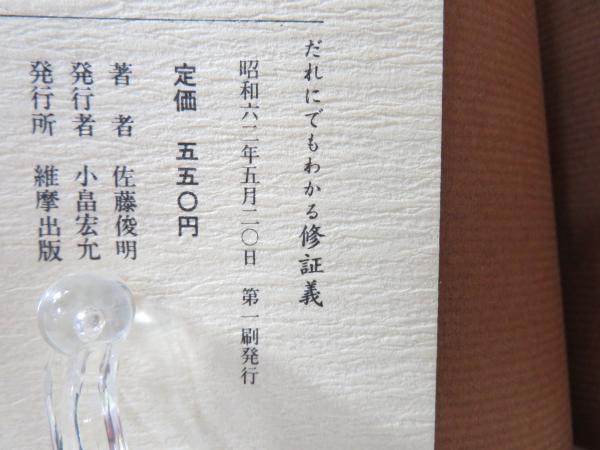 だれにでもわかる修証義
昭和六二年五月二〇日 第一刷発行
定価 五五〇円
著者 佐藤俊明
発行者 小畠宏允
発行所 維摩出版